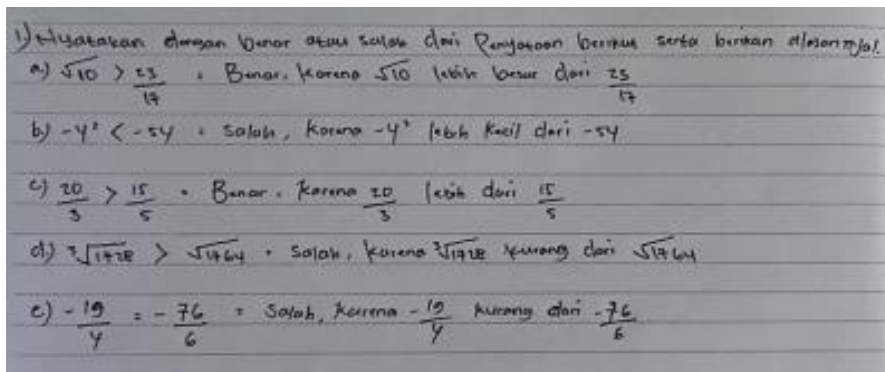 1) Nyatakan dengan benar atau salah dari Penyataan berikut serta berikan alasannya!
a) √10 > 23/17 = Benar, Karena √10 lebih besar dari 23/17
b) -4² < -54 = Salah, Karena -4² lebih Kecil dari -54
c) 20/3 > 15/5 = Benar, Karena 20/3 lebih dari 15/5
d) ³√1728 > √1764 = Salah, Karena ³√1728 kurang dari √1764
e) -19/4 = -76/6 = Salah, Karena -19/4 kurang dari -76/6